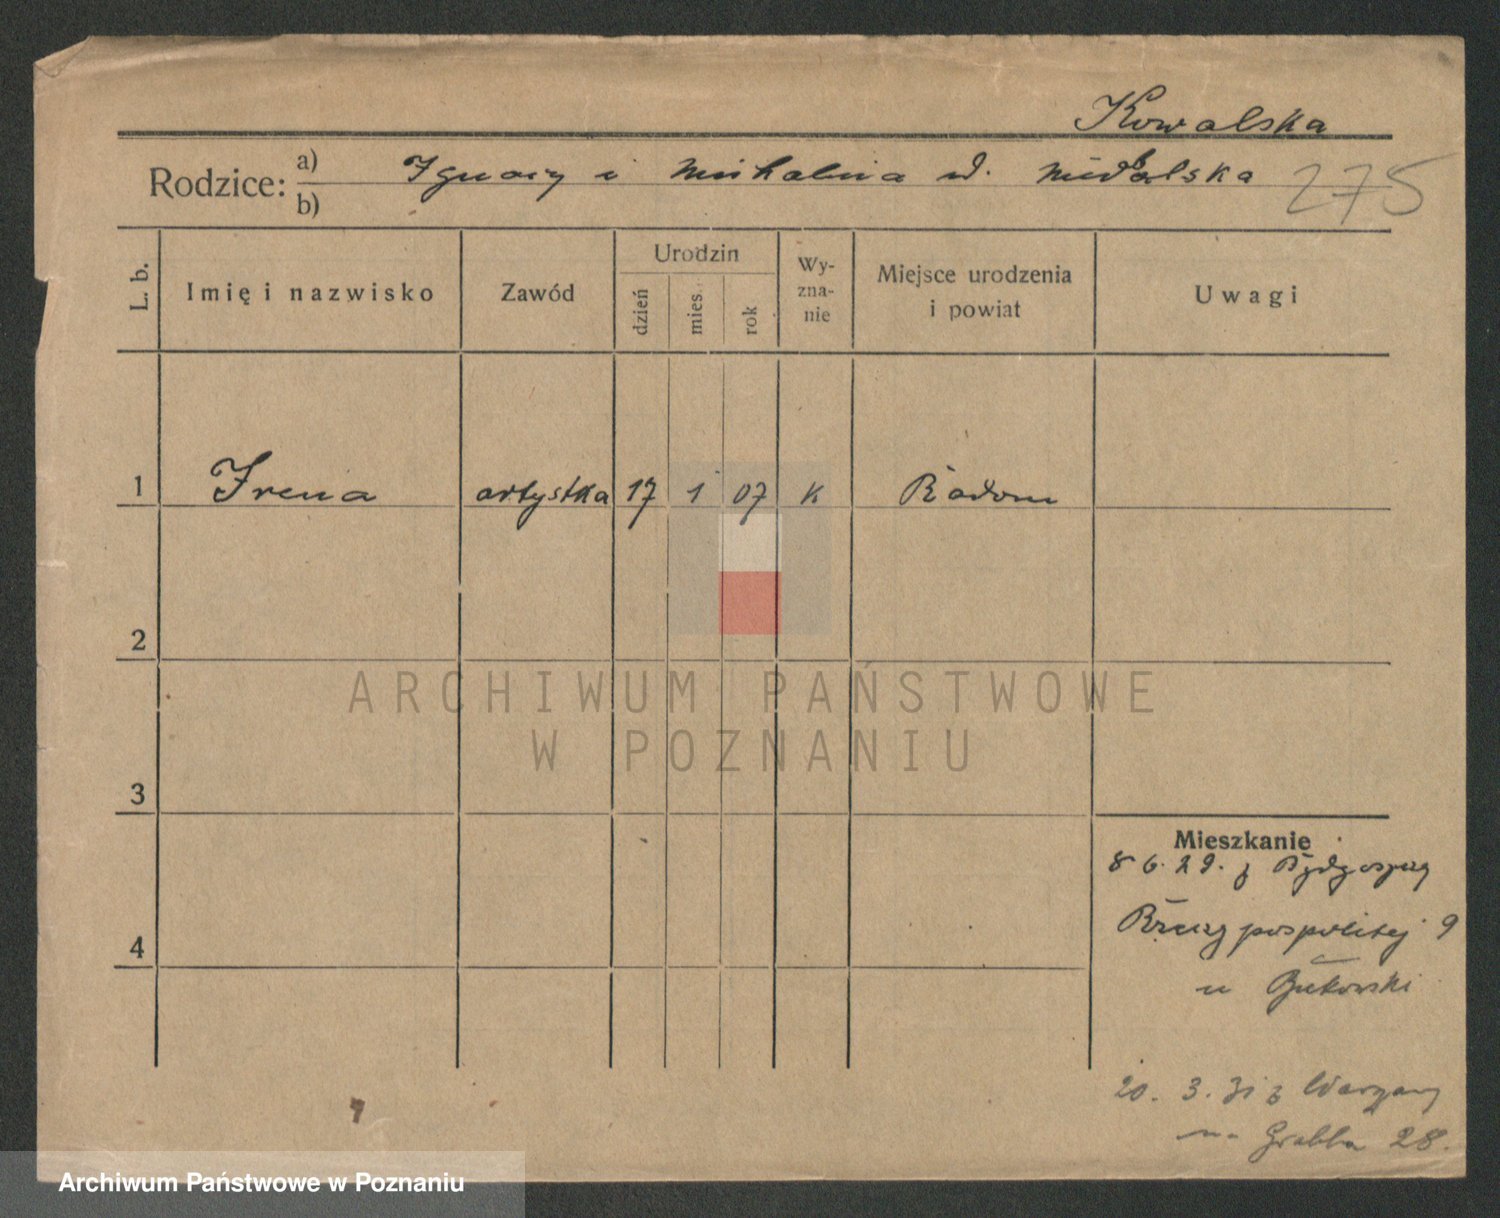 Kowalska
Rodzice: a) Ignacy i Michalina d.
b)
275
L. b.
Imię i nazwisko
Zawód
Urodzin
dzień
mies.
rok
Wy-
zna-
nie
Miejsce urodzenia
i powiat
Uwagi
1 Irena artystka 17 1 07 K Radom
2
3
4
Mieszkanie
8 6. 29. z Bydgoszczy
Rzeczypospolitej 9
u Bukowski
20. 3. 31 z Warszawy
28.
ARCHIWUM PAŃSTWOWE
W POZNANIU
Archiwum Państwowe w Poznaniu